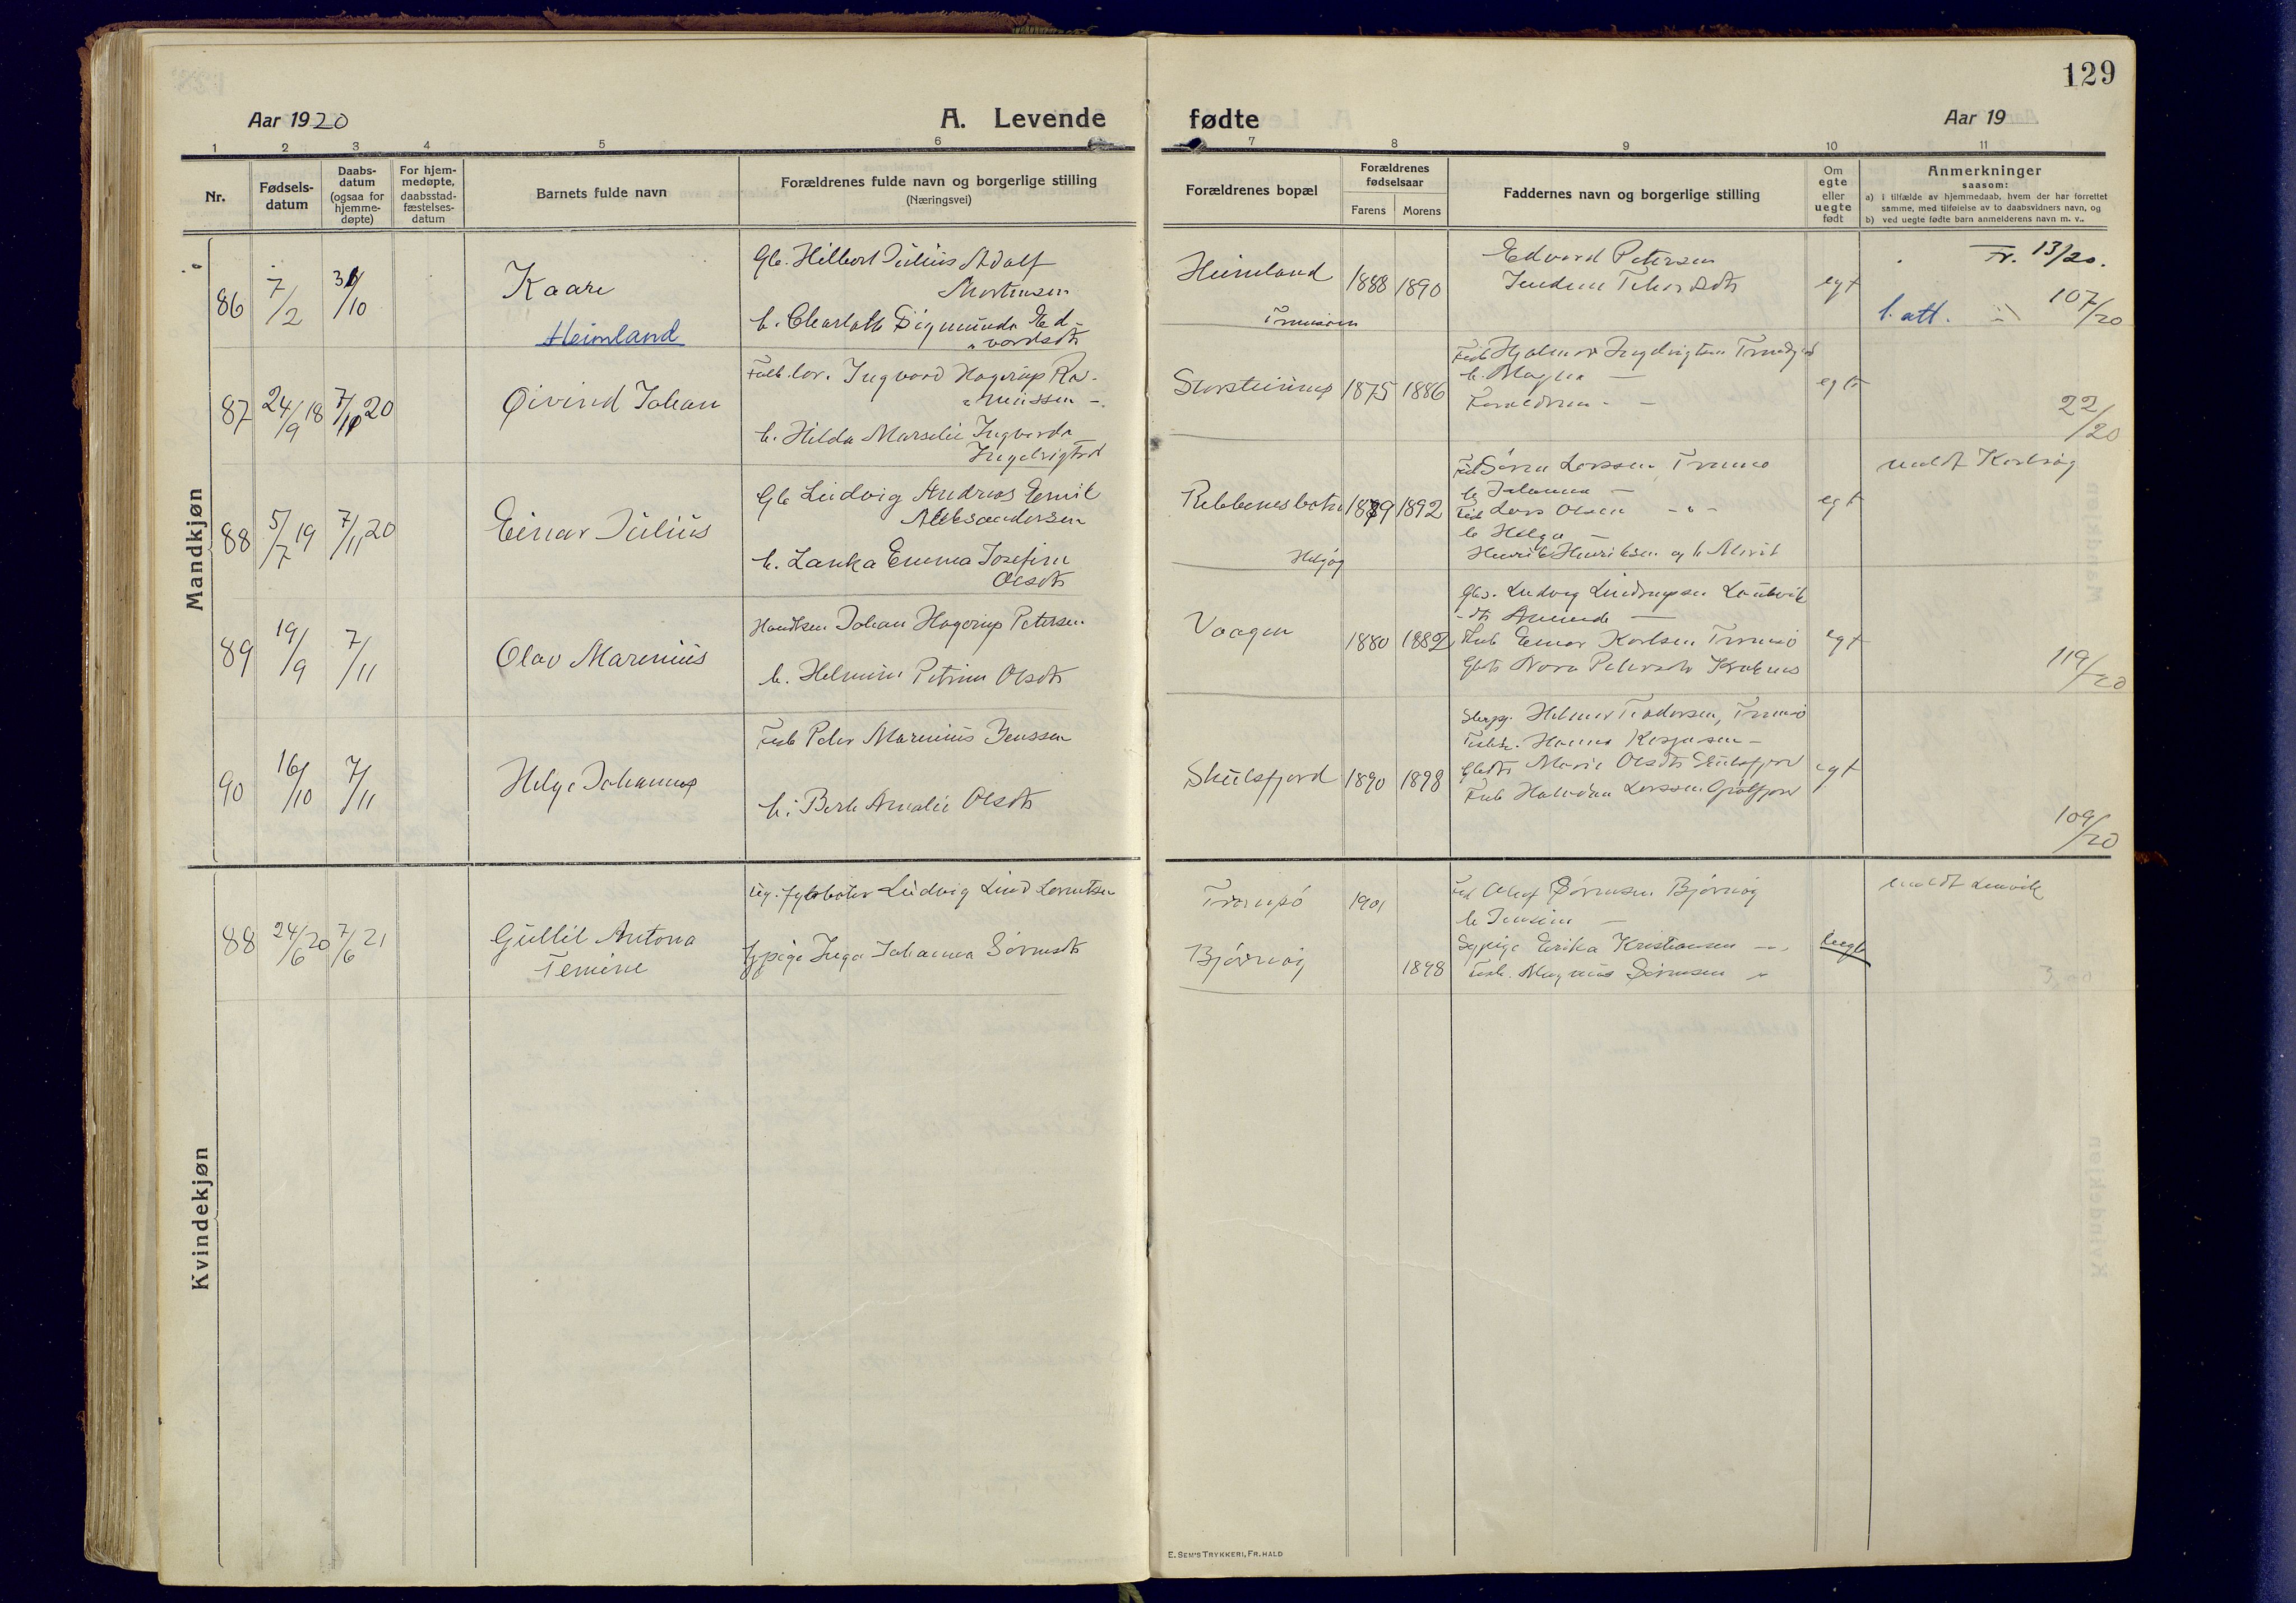 129
Aar 1920
A. Levende
fødte
Aar 19
1 2 3 4 5 6 7 8 9 10 11
Nr.
Fødsels-
datum
Daabs-
datum
(ogsaa for
hjemme-
døpte)
For hjem-
medøpte,
daabsstad-
fæstelses-
datum
Barnets fulde navn
Forældrenes fulde navn og borgerlige stilling
(Næringsvei)
Forældrenes bopæl
Forældrenes
fødselsaar
Farens Morens
Faddernes navn og borgerlige stilling
Om
egte
eller
uegte
født
Anmerkninger
saasom:
a) i tilfælde av hjemmedaab, hvem der har forrettet
samme, med tilføielse av to daabsvidners navn, og
b) ved uegte fødte barn anmelderens navn m. v..
Mandkjøn
86 7/2 31/10
Kaare
Heimland
Gb. Hilbert Julius Adolf
Mortensen
h. Charlotte Sigmunda Ed-
vardsdt
Heimland
1888 1890
Edvard Petersen
egt
Fr. 13/20.
f. att.
107/20
87 24/9 18 7/11 20
Øivind Johan
Ingvard Hagerup Ra-
h. Hilda Marselie Ingvarda
Storsteinnes 1875 1886
h. Magna —
Forældrene - -
egt
22/20
88 5/7 19 7/11 20
Einar Julius
Gb Ludvig Andreas Emil
Aleksandersen
h. Lanka Emma Josefine
Olsdt
Rebbenesbotn 1889 1892
Helgøy
Søren Larssen Tromsø
h Johanna —
Lars Olsen - " -
h Helga —
Henrik Henriksen og h
egt
meldt Karlsøy
89 19/9 7/11
Olav Marenius
Johan Hagerup Petersen
h. Helmine Petrine Olsdt
Vaagen
1880 1882
Gbs. Ludvig Lindrupsen
Einar Karlsen Tromsø
Nora Petersdt
egt
119/20
90 16/10 7/11
Helge Johannes
Fisb Peder Marenius Jenssen
h: Berle Amalie Olsdt
Skulsfjord 1890 1898
Helmer Teodorsen, Tromsø
Hanna
Marie Olsdt Skulsfjord
Fisb Halvdan Larssen Grøtfjord
egt
109/20
Kvindekjøn
88 24/6 20 7/6 21
Gullil Antona
Temine
Ug. fyrbøter Ludvig Lind Lorentsen
pige Inga Johanna Sørensdt
Tromsø 1901
Bjørnøy
1898
Olaf Sørensen Bjørnøy
h Jensine —
Sypige Erika Kristiansen — " —
Fisb. Magnus Sørensen "
uegte
meldt Lenvik
E. SEM'S TRYKKERI, FR. HALD